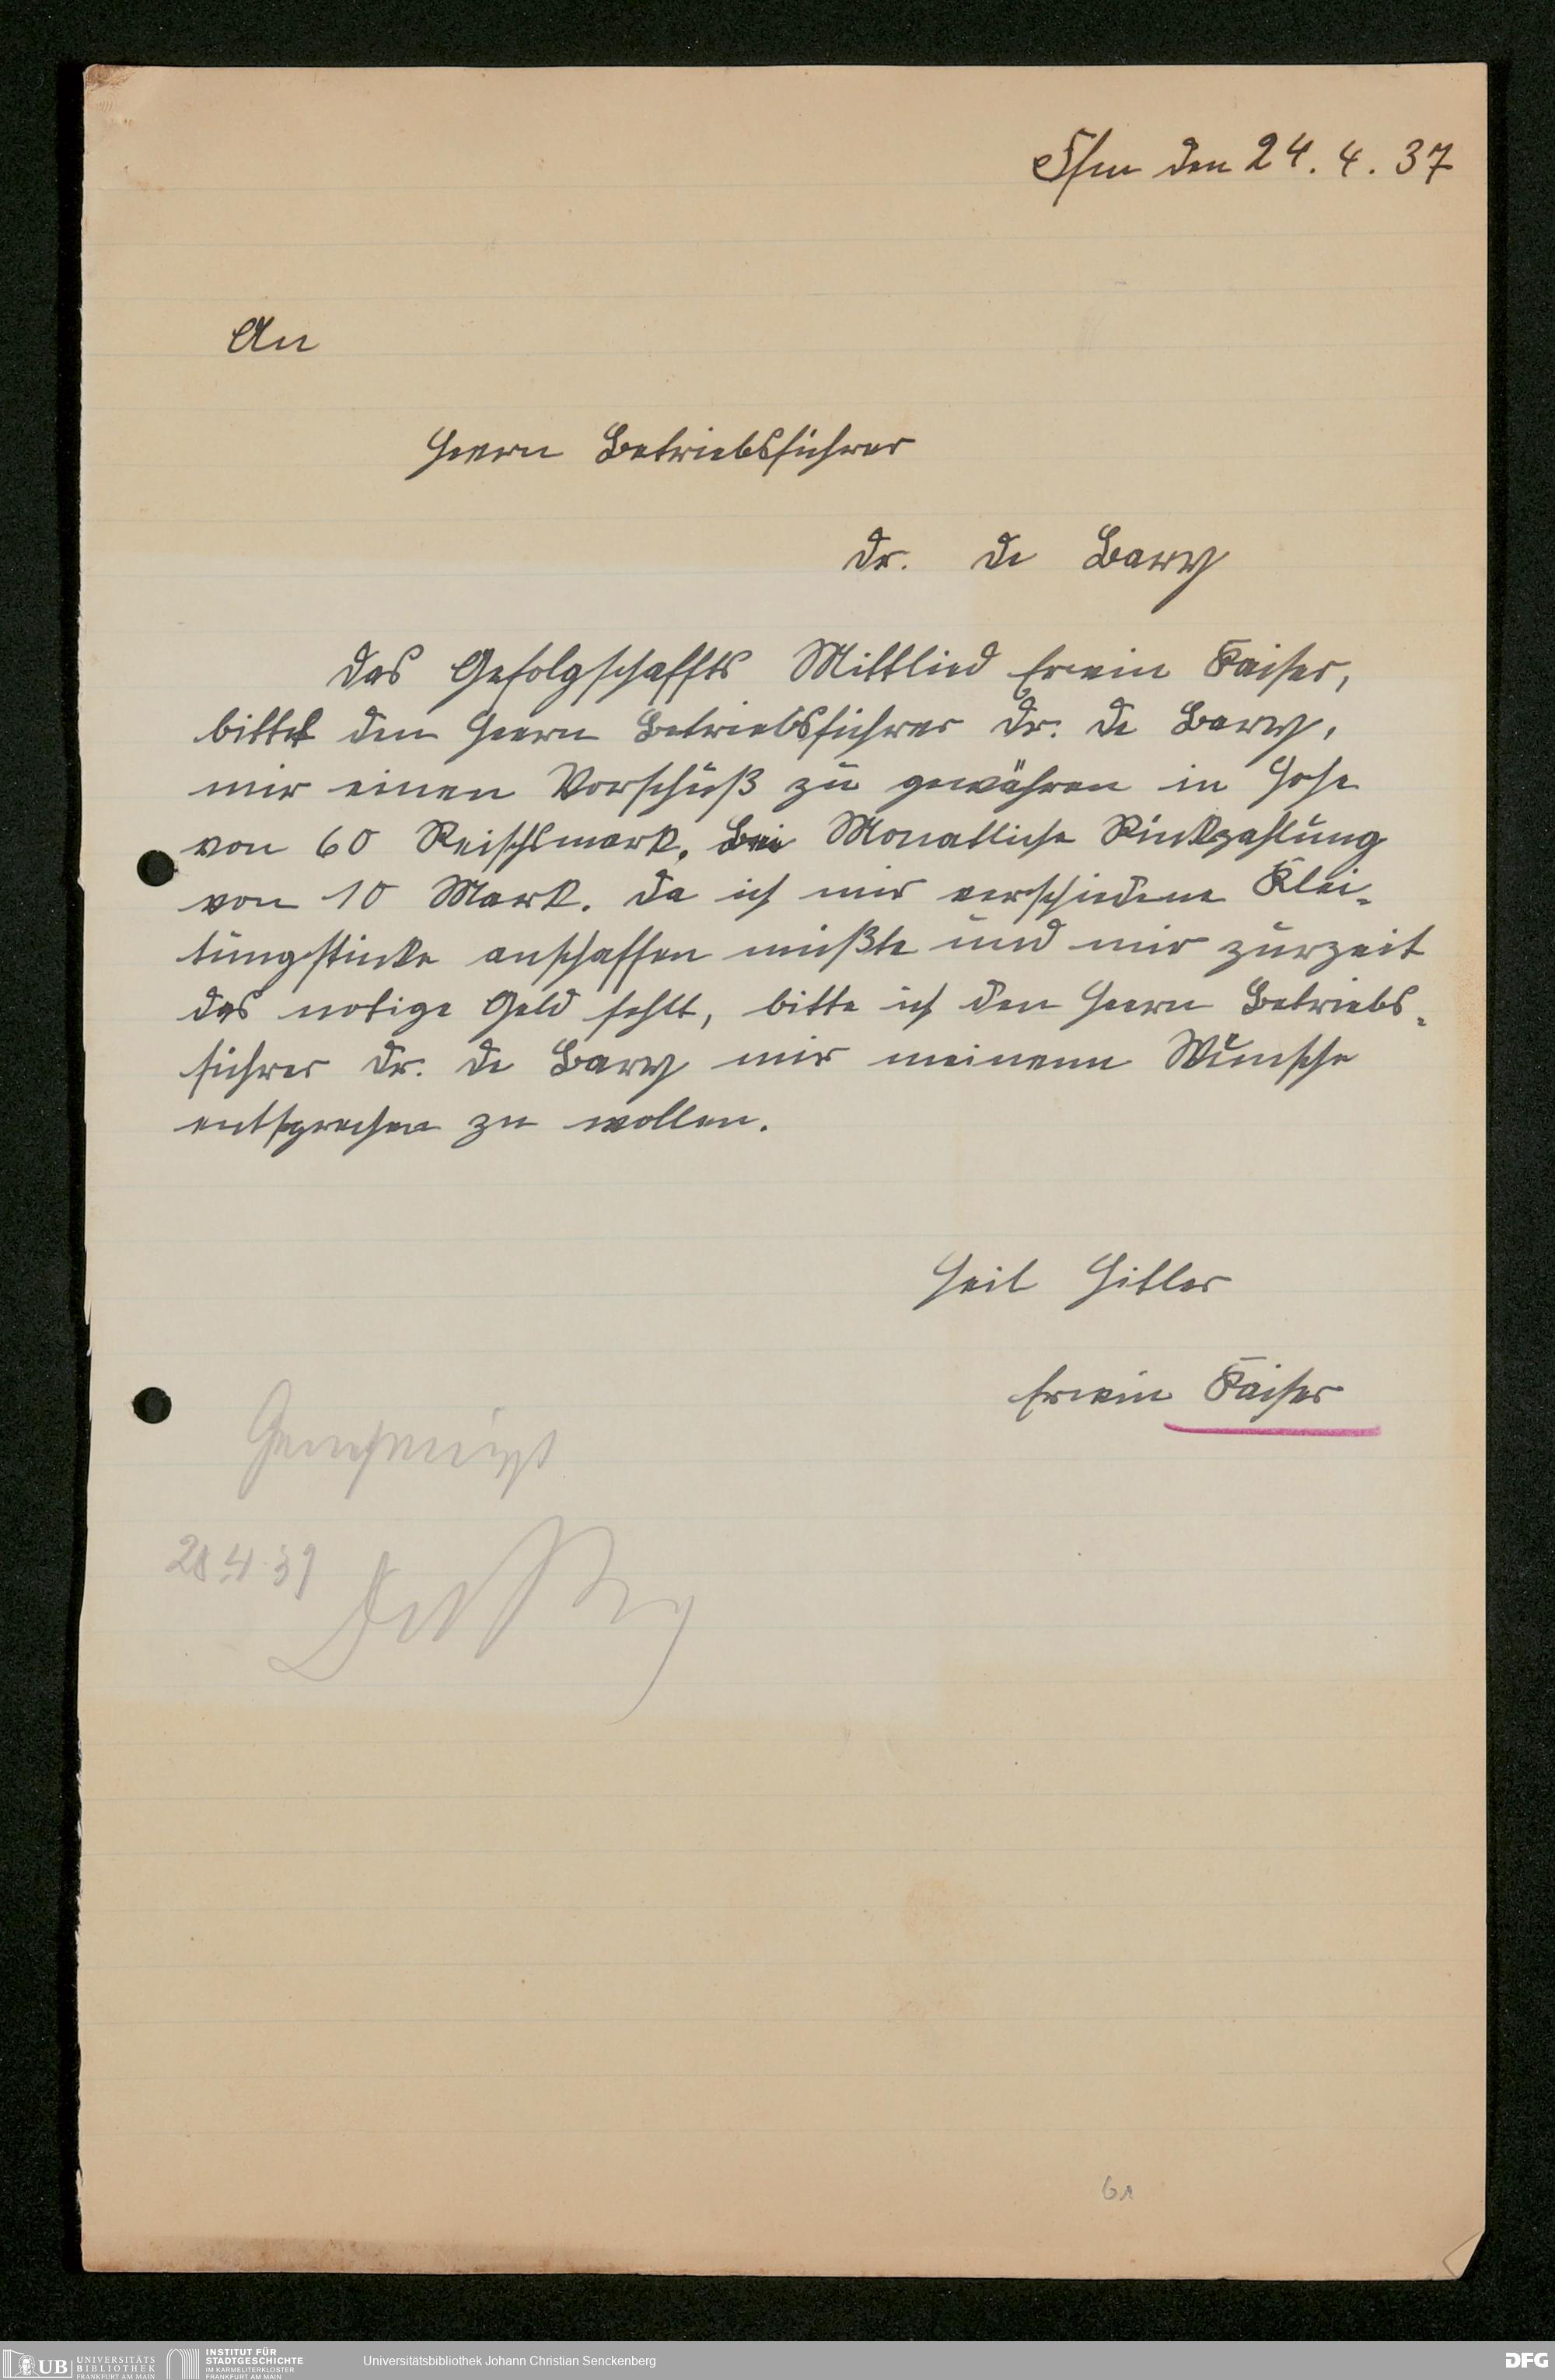 Ffm den 24. 4. 37
An
Herrn Betriebsführer
Dr. de Bary
Das Gefolgschaffts Mittlied Erwin Kaiser,
bittet den Herrn Betriebsführer Dr. de Bary,
mir einen Vorschuß zu gewähren in Höhe
von 60 Reischsmark. Bei Monatliche Rückzahlung
von 10 Mark. Da ich mir verschiedene Klei-
tungstücke anschaffen müßte und mir zurzeit
das notige Geld fehlt, bitte ich den Herrn Betriebs-
führer Dr. de Bary mir meinenn Wunsche
entsprechen zu wollen.
Heil Hitler
Erwin Kaiser
Genehmigt
28 4 37
61
UB UNIVERSITÄTS
BIBLIOTHEK
FRANKFURT AM MAIN
INSTITUT FÜR
STADTGESCHICHTE
IM KARMELITERKLOSTER
FRANKFURT AM MAIN
Universitätsbibliothek Johann Christian Senckenberg
DFG